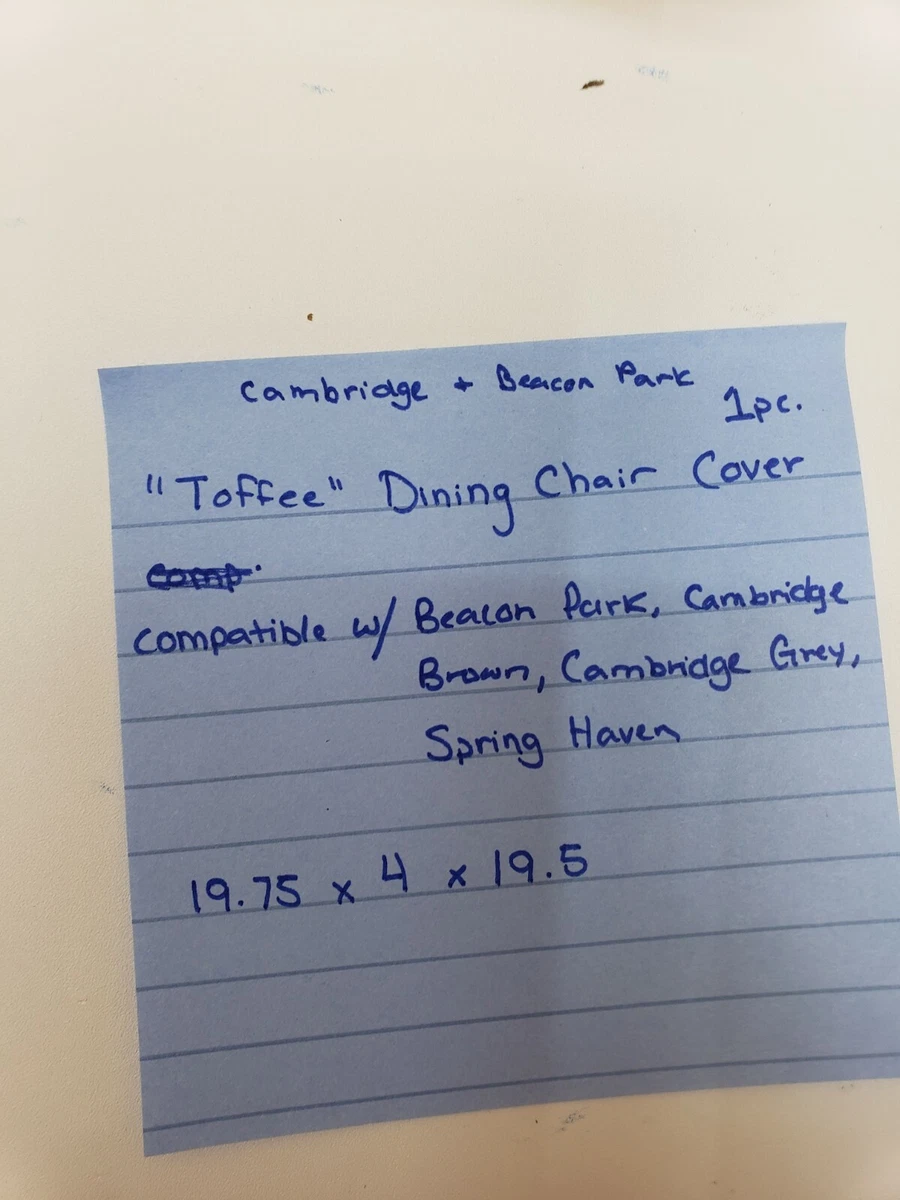 Cambridge + Beacon Park
1pc.
"Toffee" Dining Chair Cover
comp.
compatible w/ Beacon Park, Cambridge
Brown, Cambridge Grey,
Spring Haven
19.75 x 4 x 19.5